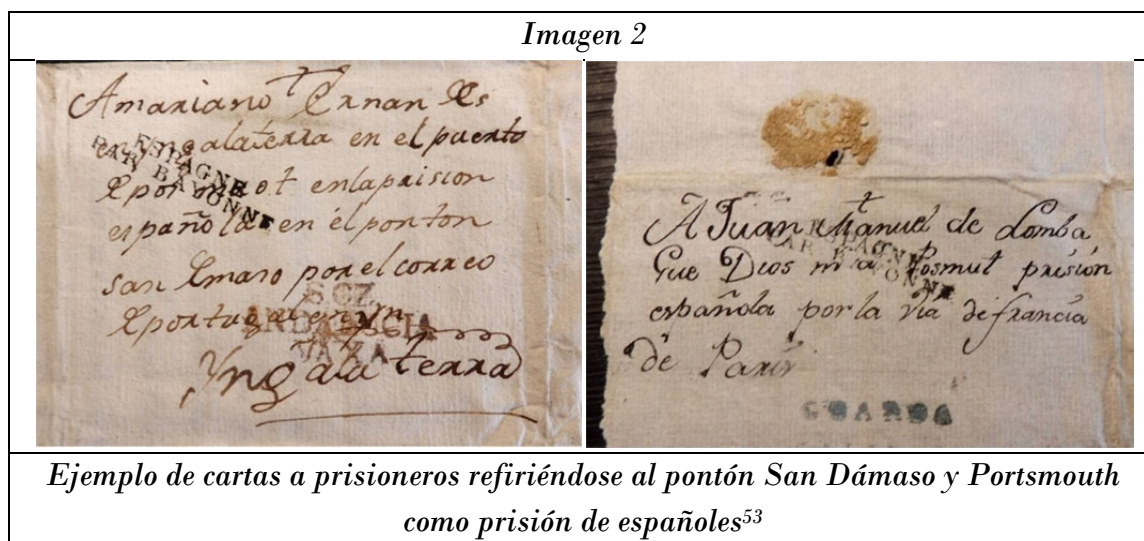 Imagen 2
Amariano Ernan Des
en yngalaterra en el puerto
ESPAGNE
PAR BAYONNE
Depormaot enlaprision
española en el ponton
san Emaso por el correo
S.CZ.
Deportugal en yn
ANDALUCIA
VAXA
Yngalaterra
A Juan Manuel de Lomba,
Gue Dios m a Posmut prision
PAR BAYONNE
española por la via defrancia
de Paris
GUARDA
Ejemplo de cartas a prisioneros refiriéndose al pontón San Dámaso y Portsmouth
como prisión de españoles53